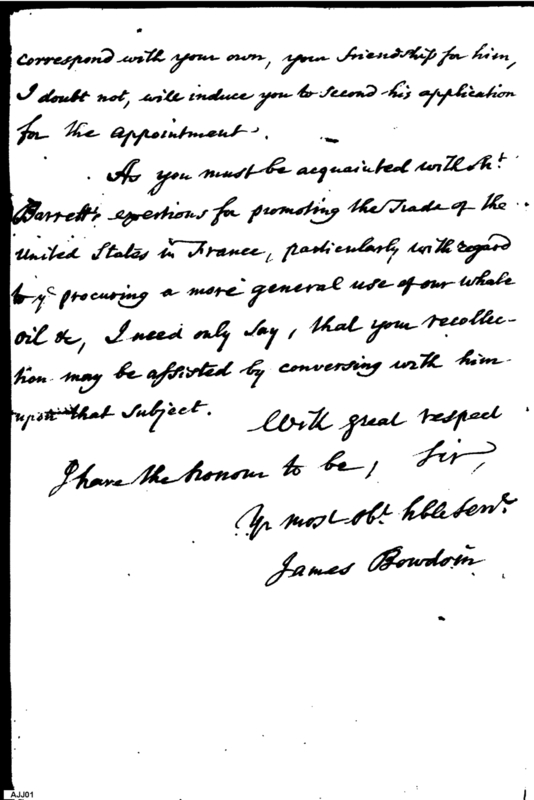 correspond with your own, your friendship for him,
I doubt not, will induce you to second his application
for the appointment.
As you must be acquainted with Mr.
Barrett's exertions for promoting the Trade of the
united States in France, particularly with regard
to ye. procuring a more general use of our whale
oil &c, I need only say, that your recollec-
tion may be assisted by conversing with him
upon that subject.
With great respect
I have the honour to be, Sir,
Yr most obt. hble Servt.
James Bowdoin
AJJ01